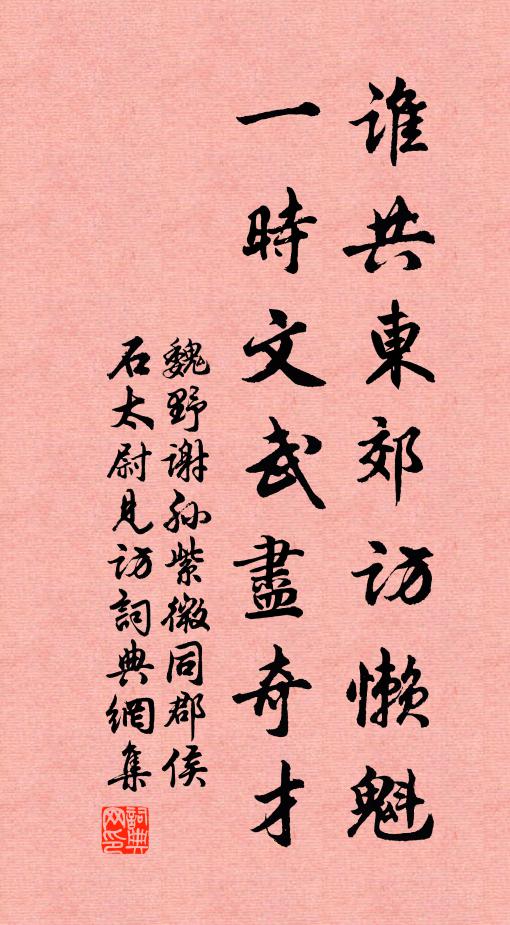 誰共東郊訪懶魁
一時文武盡奇才
魏野謝孙紫微同郡侯
石太尉見访詞典網集
詞典
网印